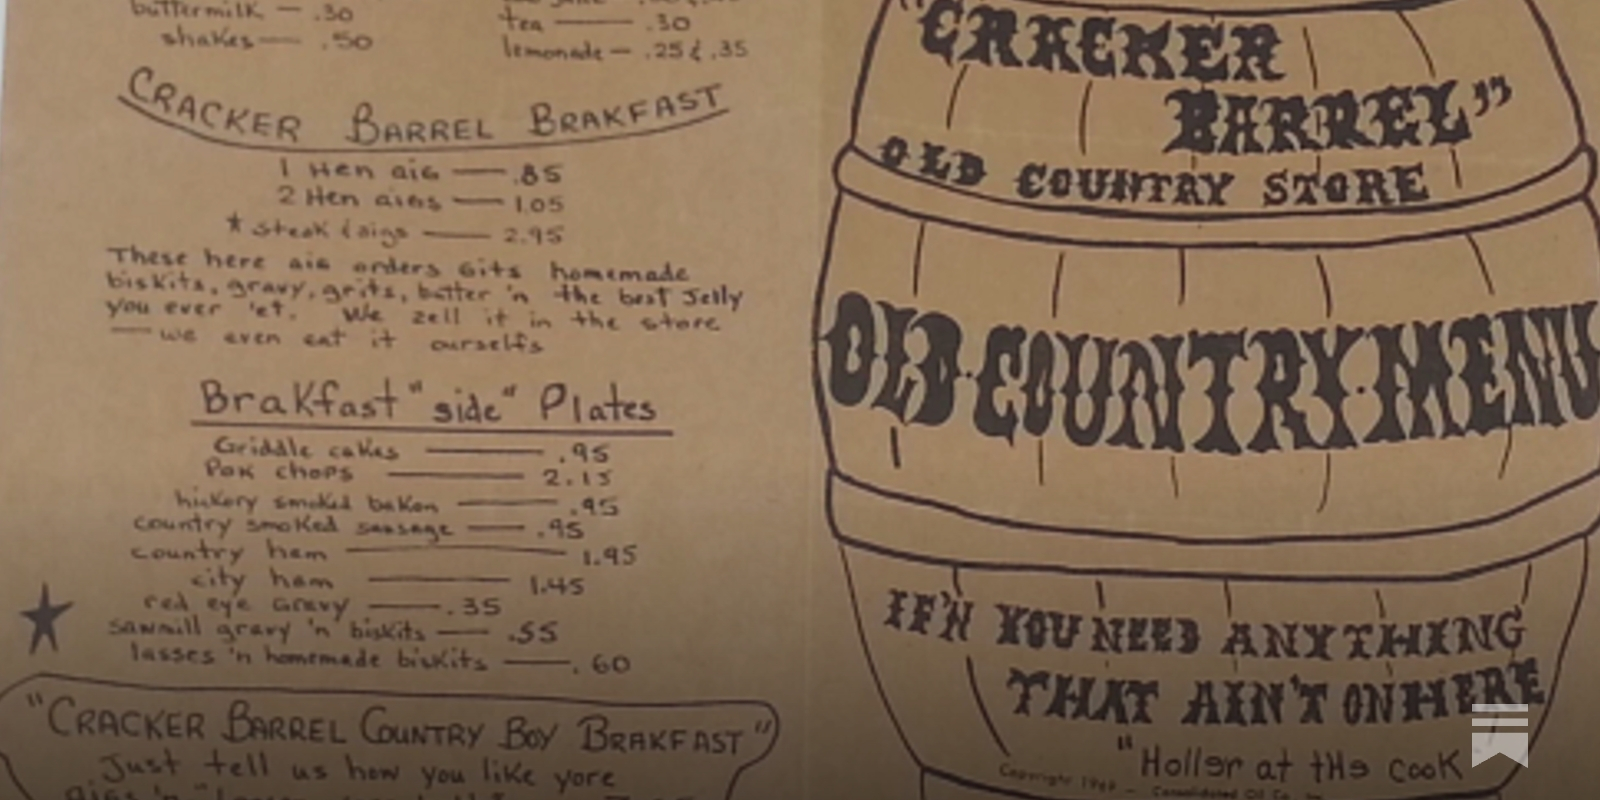 buttermilk — .30
shakes — .50
tea — .30
lemonade — .25 & .35
CRACKER BARREL BRAKFAST
1 Hen aig — .85
2 Hen aigs — 1.05
* steak & aigs — 2.95
These here aig orders gits homemade
biskits, gravy, grits, butter 'n the best Jelly
you ever 'et. We sell it in the store
— we even eat it ourselfs
Brakfast "side" Plates
Griddle cakes — .95
Pok chops — 2.15
hickory smoked bakon — .95
country smoked sausage — .95
country ham — 1.95
city ham — 1.45
red eye gravy — .35
sawmill gravy 'n' biskits — .55
lasses 'n homemade biskits — .60
"CRACKER BARREL COUNTRY BOY BRAKFAST"
Just tell us how you like yore
"CRACKER
BARREL"
OLD COUNTRY STORE
OLD·COUNTRY·MENU
IF'N YOU NEED ANYTHING
THAT AIN'T ON HERE
"Holler at tHe cooK
Copyright 1969 — Consolidated Oil Co.